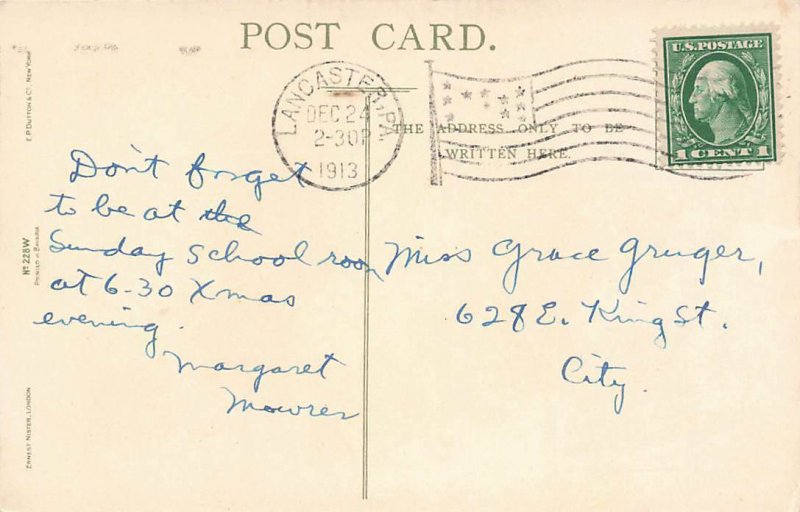 POST CARD.
LANCASTER, PA.
DEC 24
2-30P
1913
U.S. POSTAGE
1 CENT 1
THE ADDRESS ONLY TO BE
WRITTEN HERE.
E.P. DUTTON & CO. NEW YORK
Nº 228W
PRINTED IN BAVARIA
ERNEST NISTER, LONDON
Don't forget
to be at the
Sunday School room
at 6-30 Xmas
evening.
Margaret
Mowrer
Miss Grace Gruger,
628 E. King St.
City.